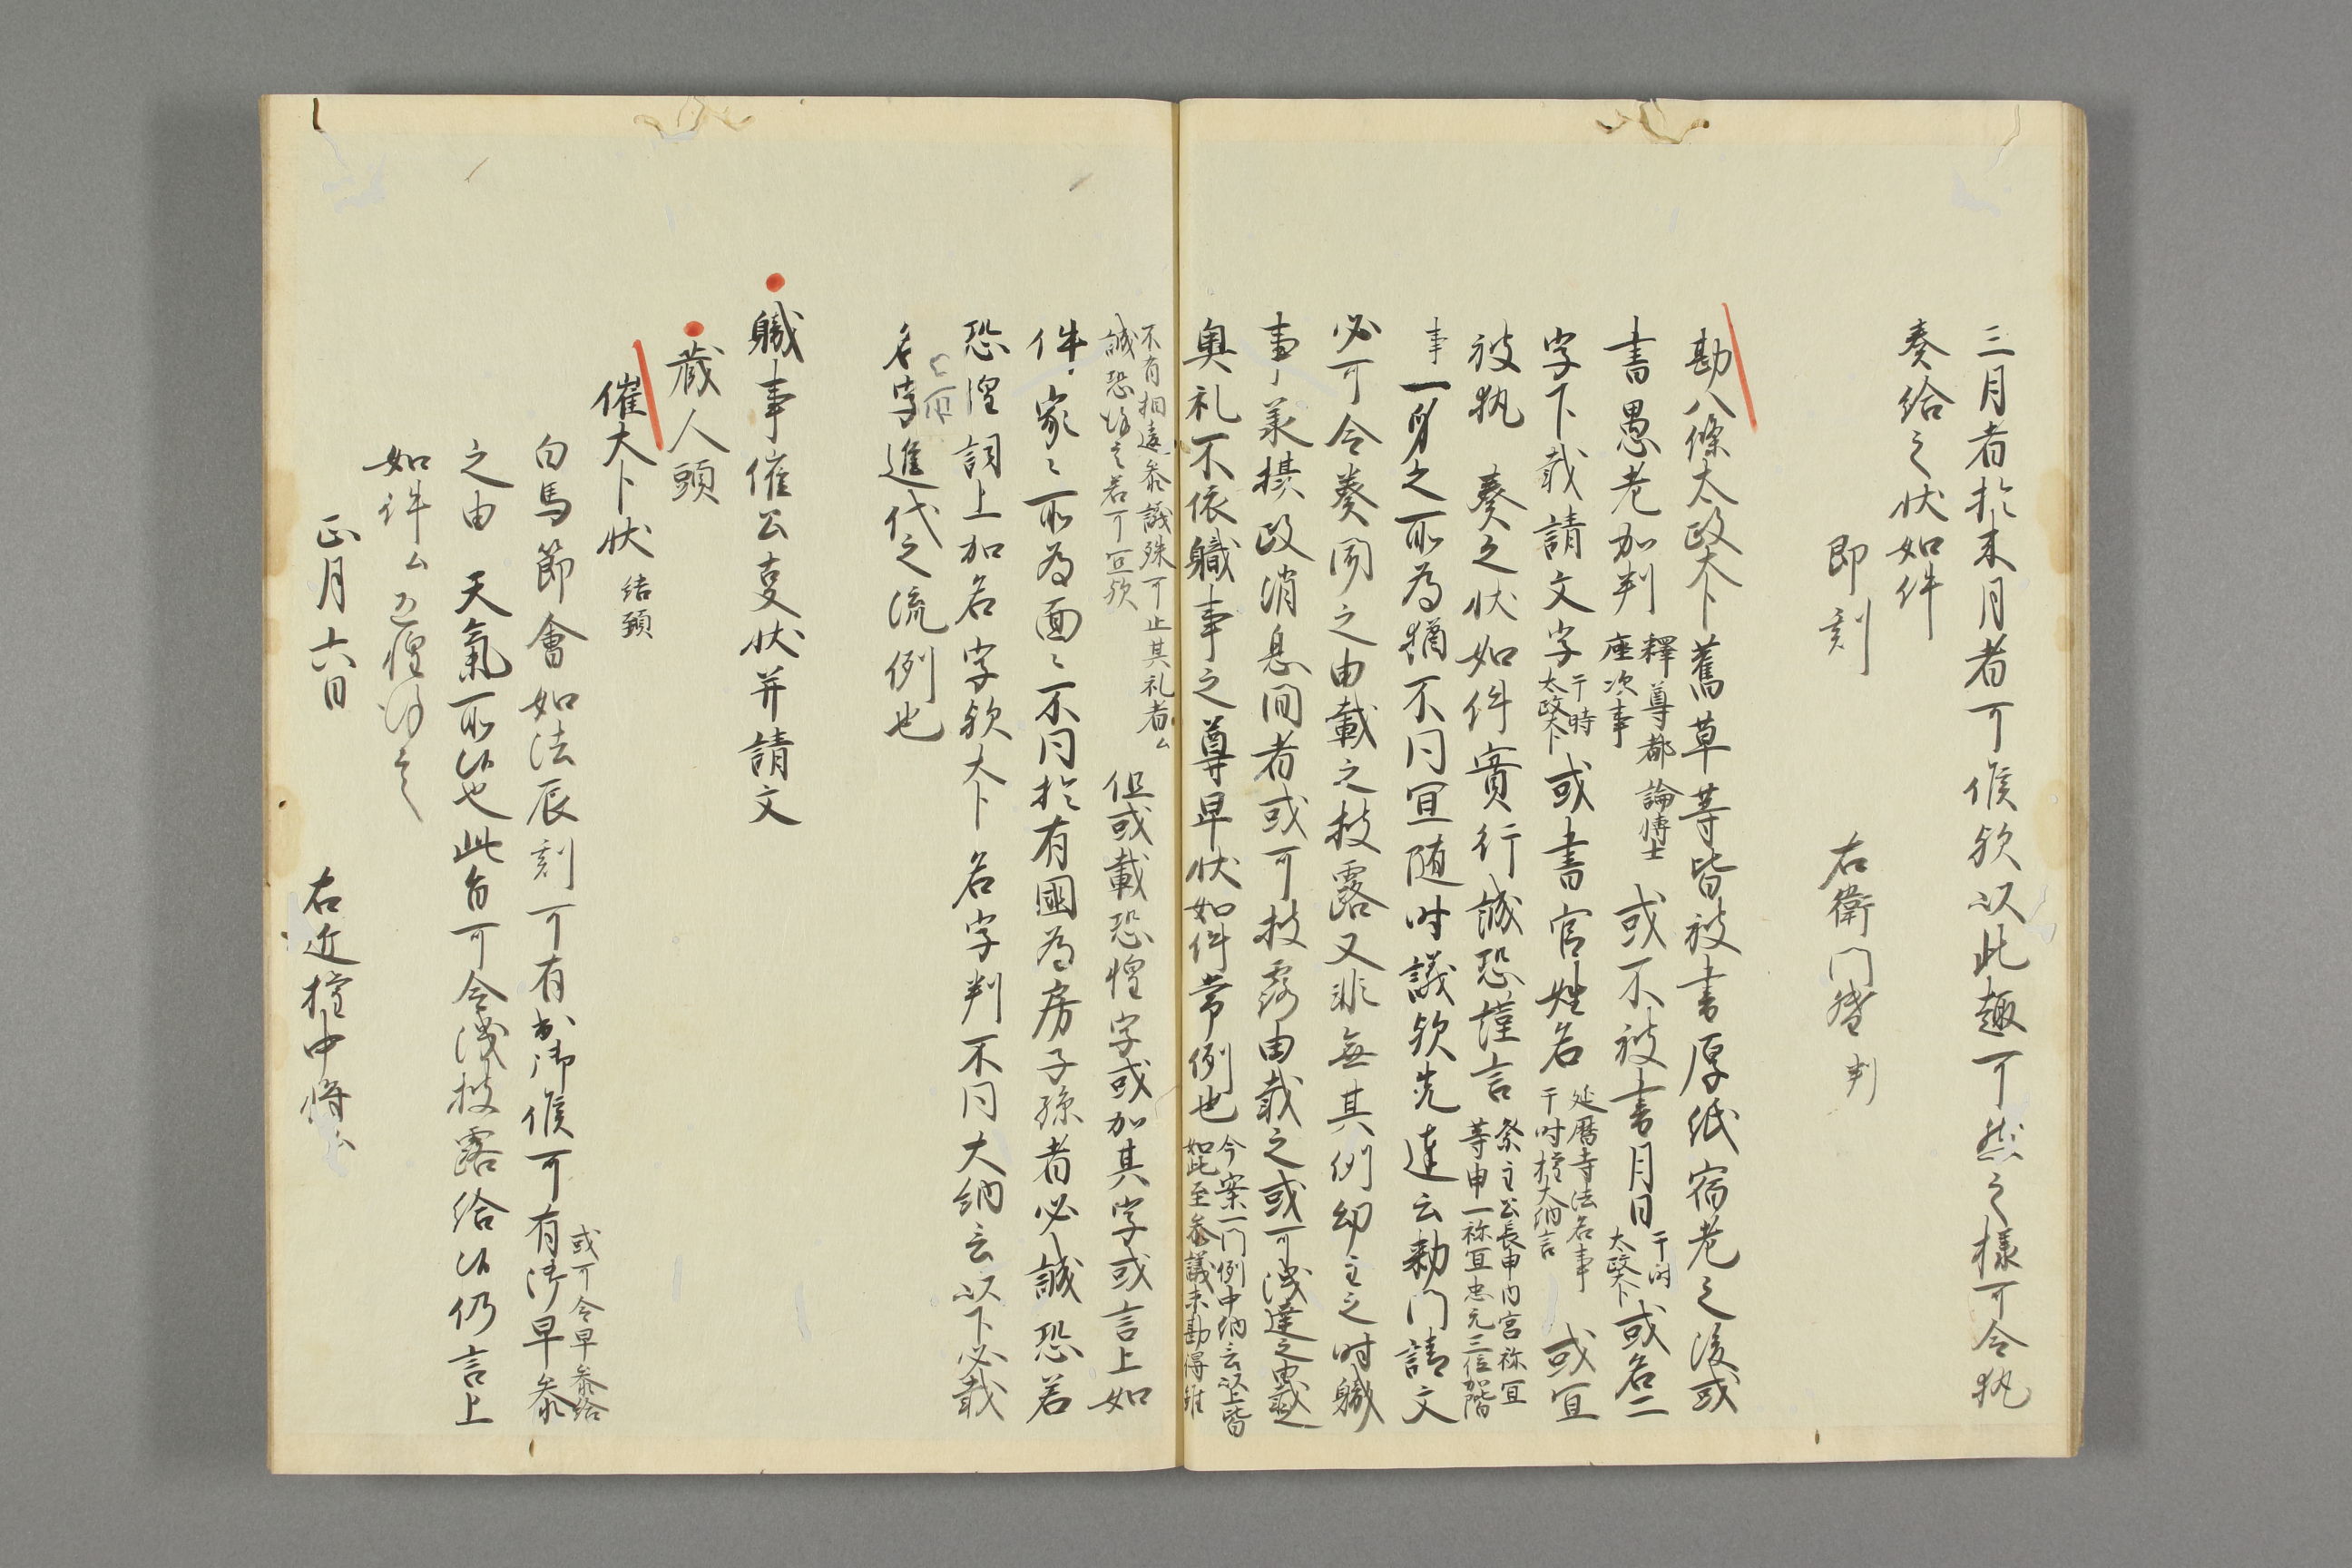 三月者於末月者可候欤以此趣可然之様可令執
奏給之状如件
即刻　右衛門督判
勘八條太政大卜舊草等皆被書厚紙宿老之後或
書愚老加判釋尊都論博士座次事或不被書月日于时太政大卜或名二
字下載請文字于時太政大卜或書官姓名延暦寺法名事于时権大納言或宜
被執　奏之状如件實行誠恐謹言祭主公長申内宮祢宜等申一祢宜忠元三位加階
事一身之所為猶不同宜随时議欤先達云勅門請文
必可令奏聞之由載之披露又非無其例幼主之时職
事羕摂政消息間者或可披露由載之或可洩達之由載之
奥礼不依職事之尊卑状如件常例也今案一門例中納言以上皆如此至参議未勘得雖
不有相違参議殊可止其礼者ム誠恐謹言若可宜欤但或載恐惶字或加其字或言上如
件家ミ所為面ミ不同於有國為房子孫者必誠恐若
恐惶詞上加名字欤大卜名字判不同大納言以下必載
名字進代之流例也
職事催公事状并請文
蔵人頭
催大卜状　結頭
白馬節會如法辰刻可有出御候可有御早参或可令早参給
之由　天氣所候也此旨可令洩披露給候仍言上
如件ム恐惶謹言
正月六日　右近権中将ム